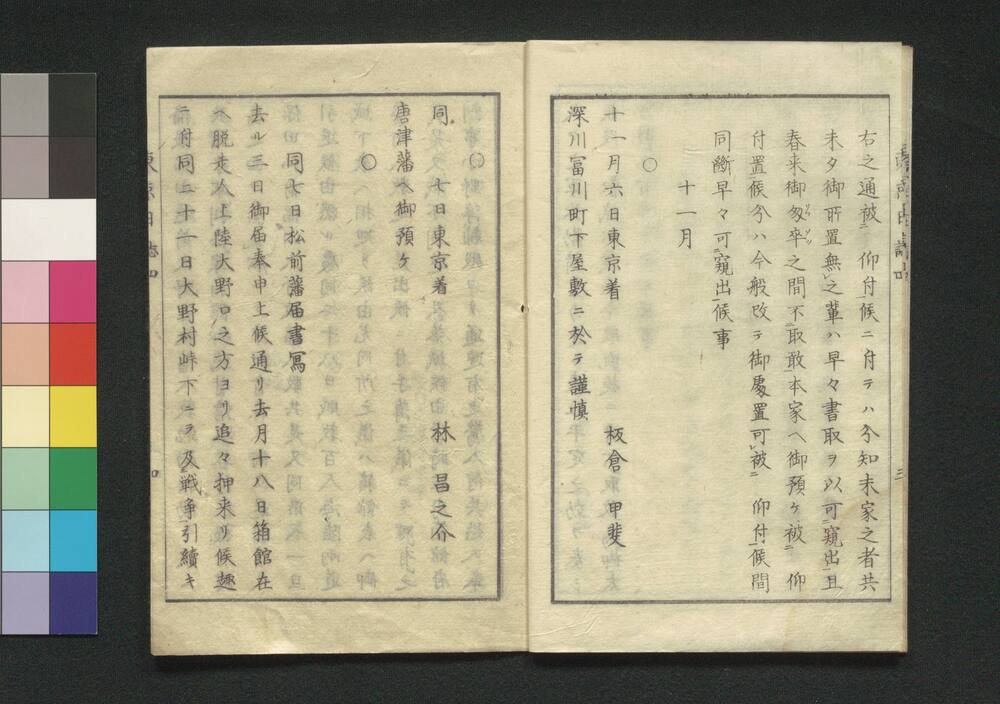 右之通被 仰付候ニ付テハ兮知末家之者共
未タ御所置無之輩ハ早々書取ヲ以可窺出且
春来御匆卒之間不取敢本家ヘ御預ケ被 仰
付置候兮ハ今般改テ御處置可被 仰付候間
同斷早々可窺出候事
十一月
○
十一月六日東京着 板倉甲斐
深川冨川町下屋敷ニ於テ謹慎
三
○
同 七日東京着 林昌之介
唐津藩ヘ御預ケ
○
同七日松前藩届書寫
去ル三日御届奉申上候通リ去月十八日箱館在
ヘ脱走人上陸大野口之方ヨリ追々押来リ候趣
ニ付同二十一日大野村峠下ニテ及戦争引續キ
東京日誌四
四